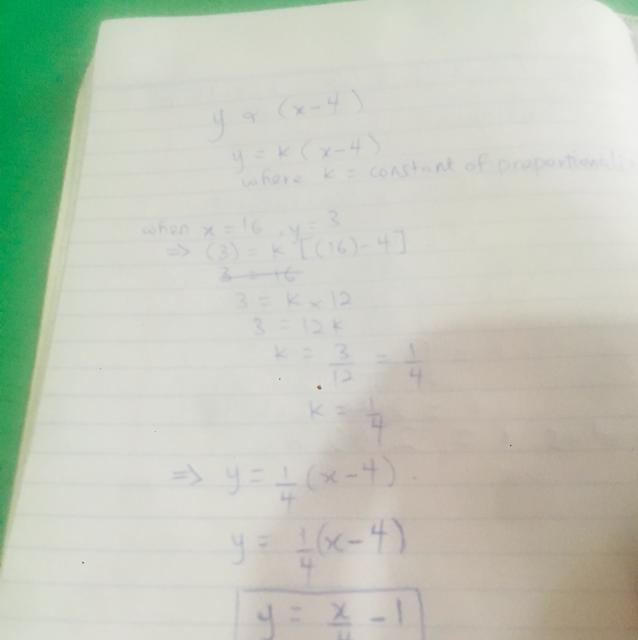 y ∝ (x-4)
y = k (x-4)
where k = constant of proportionali
when x = 16, y = 3
⇒ (3) = k [(16)-4]
3 = 16
3 = k × 12
3 = 12k
k = 3/12 = 1/4
k = 1/4
⇒ y = 1/4 (x-4).
y = 1/4 (x-4)
y = x/4 - 1